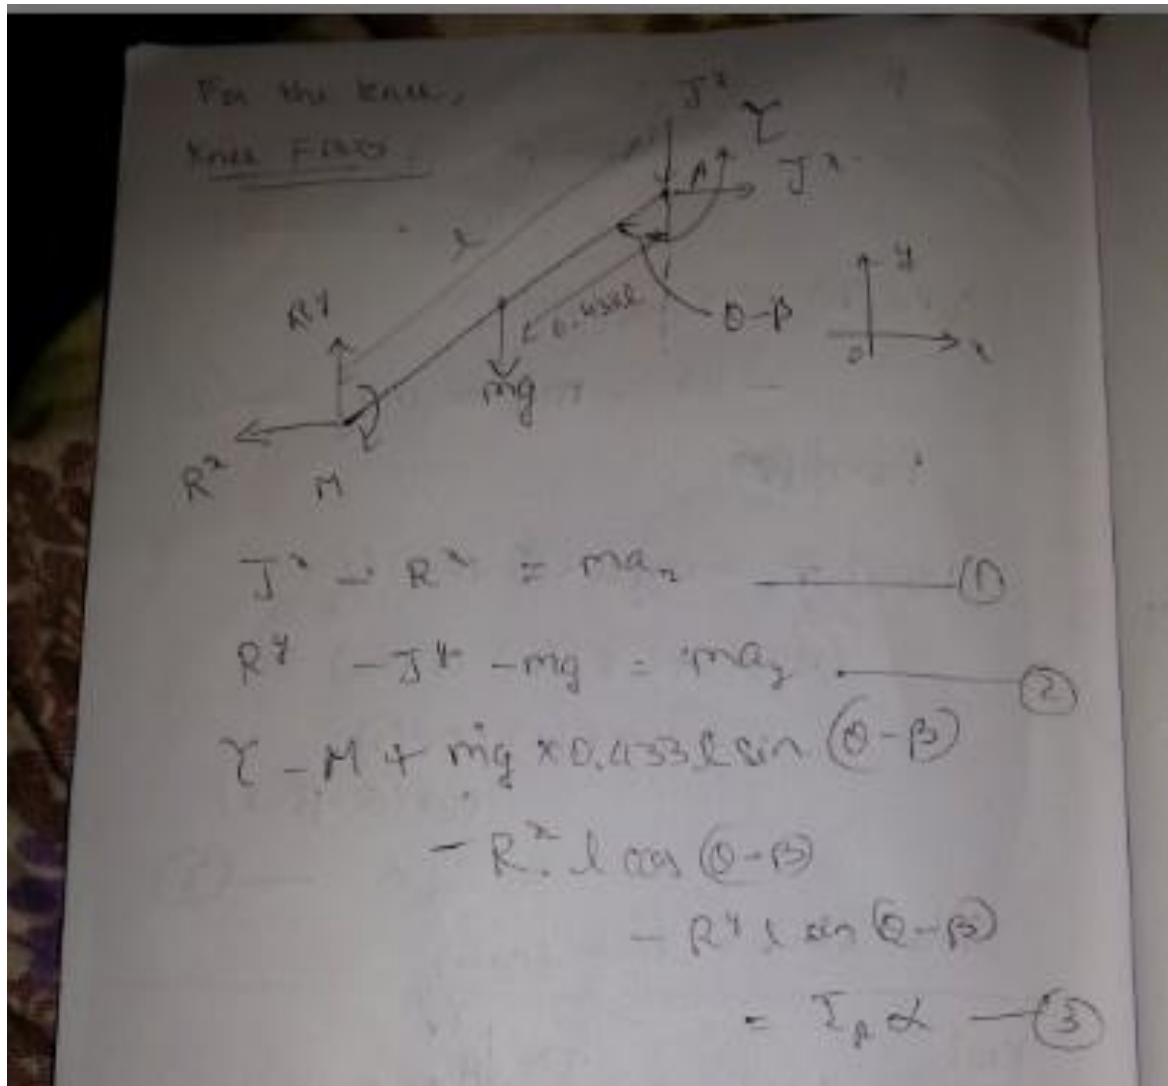 For the knee,
Knee FBD:
J^y
τ
A
J^x
l
R^y
0.433l
θ-β
y
0
x
mg
R^x
M
J^x - R^x = ma_x ——— ①
R^y - J^y - mg = ma_y ——— ②
τ - M + mg × 0.433 l sin (θ-β)
- R^x. l cos (θ-β)
- R^y l sin (θ-β)
= I_A α — ③